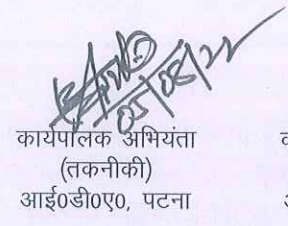 05/08/22
कार्यपालक अभियंता
(तकनीकी)
आई0डी0ए0, पटना